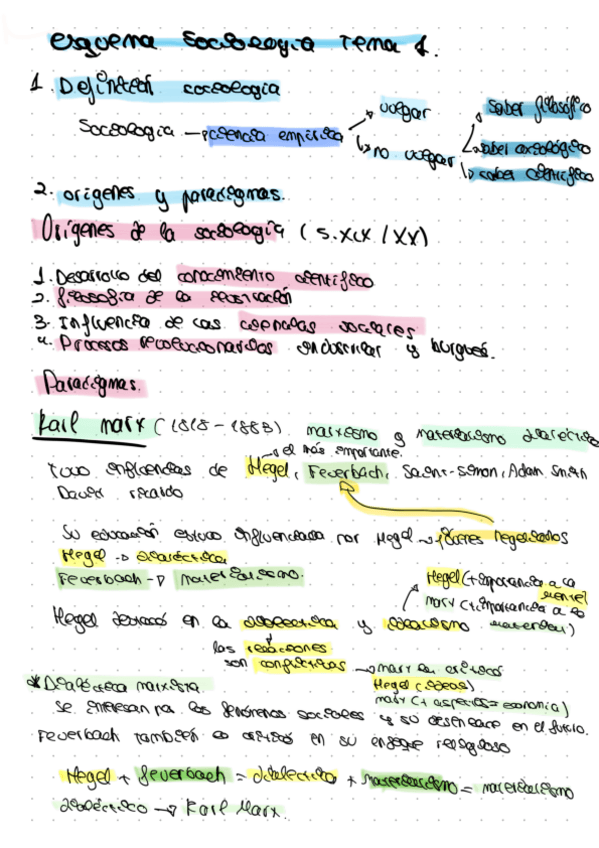 esquema Sociología Tema 1.
1. Definición sociología
Sociología → ciencia empírica
vulgar
no vulgar
saber filosófico
saber axiológico
saber científico
2. orígenes y paradigmas.
Orígenes de la sociología (S.XIX/XX)
1. Desarrollo del conocimiento científico
2. filosofía de la ilustración
3. Influencia de las corrientes sociales
4. Procesos revolucionarios industrial y burgués.
Paradigmas.
Karl Marx (1818-1883). marxismo y materialismo dialéctico
→ el más importante.
Tuvo influencias de Hegel, Feuerbach, Saint-Simon, Adam Smith
David ricardo
Su educación estuvo influenciada por Hegel → jóvenes hegelianos
Hegel → dialéctica
Feuerbach → materialismo.
Hegel (+ importancia a la mente)
Marx (+ importancia a lo material)
Hegel destacó en la dialéctica y idealismo
las relaciones
son conflictivas → Marx las criticó
Hegel (ideas)
Marx (+ aspectos = economía)
* Dialéctica marxista.
Se interesan por los fenómenos sociales y su desenlace en el futuro.
Feuerbach también lo criticó en su enfoque religioso
Hegel + feuerbach = dialéctica + materialismo = materialismo
dialéctico → Karl Marx.